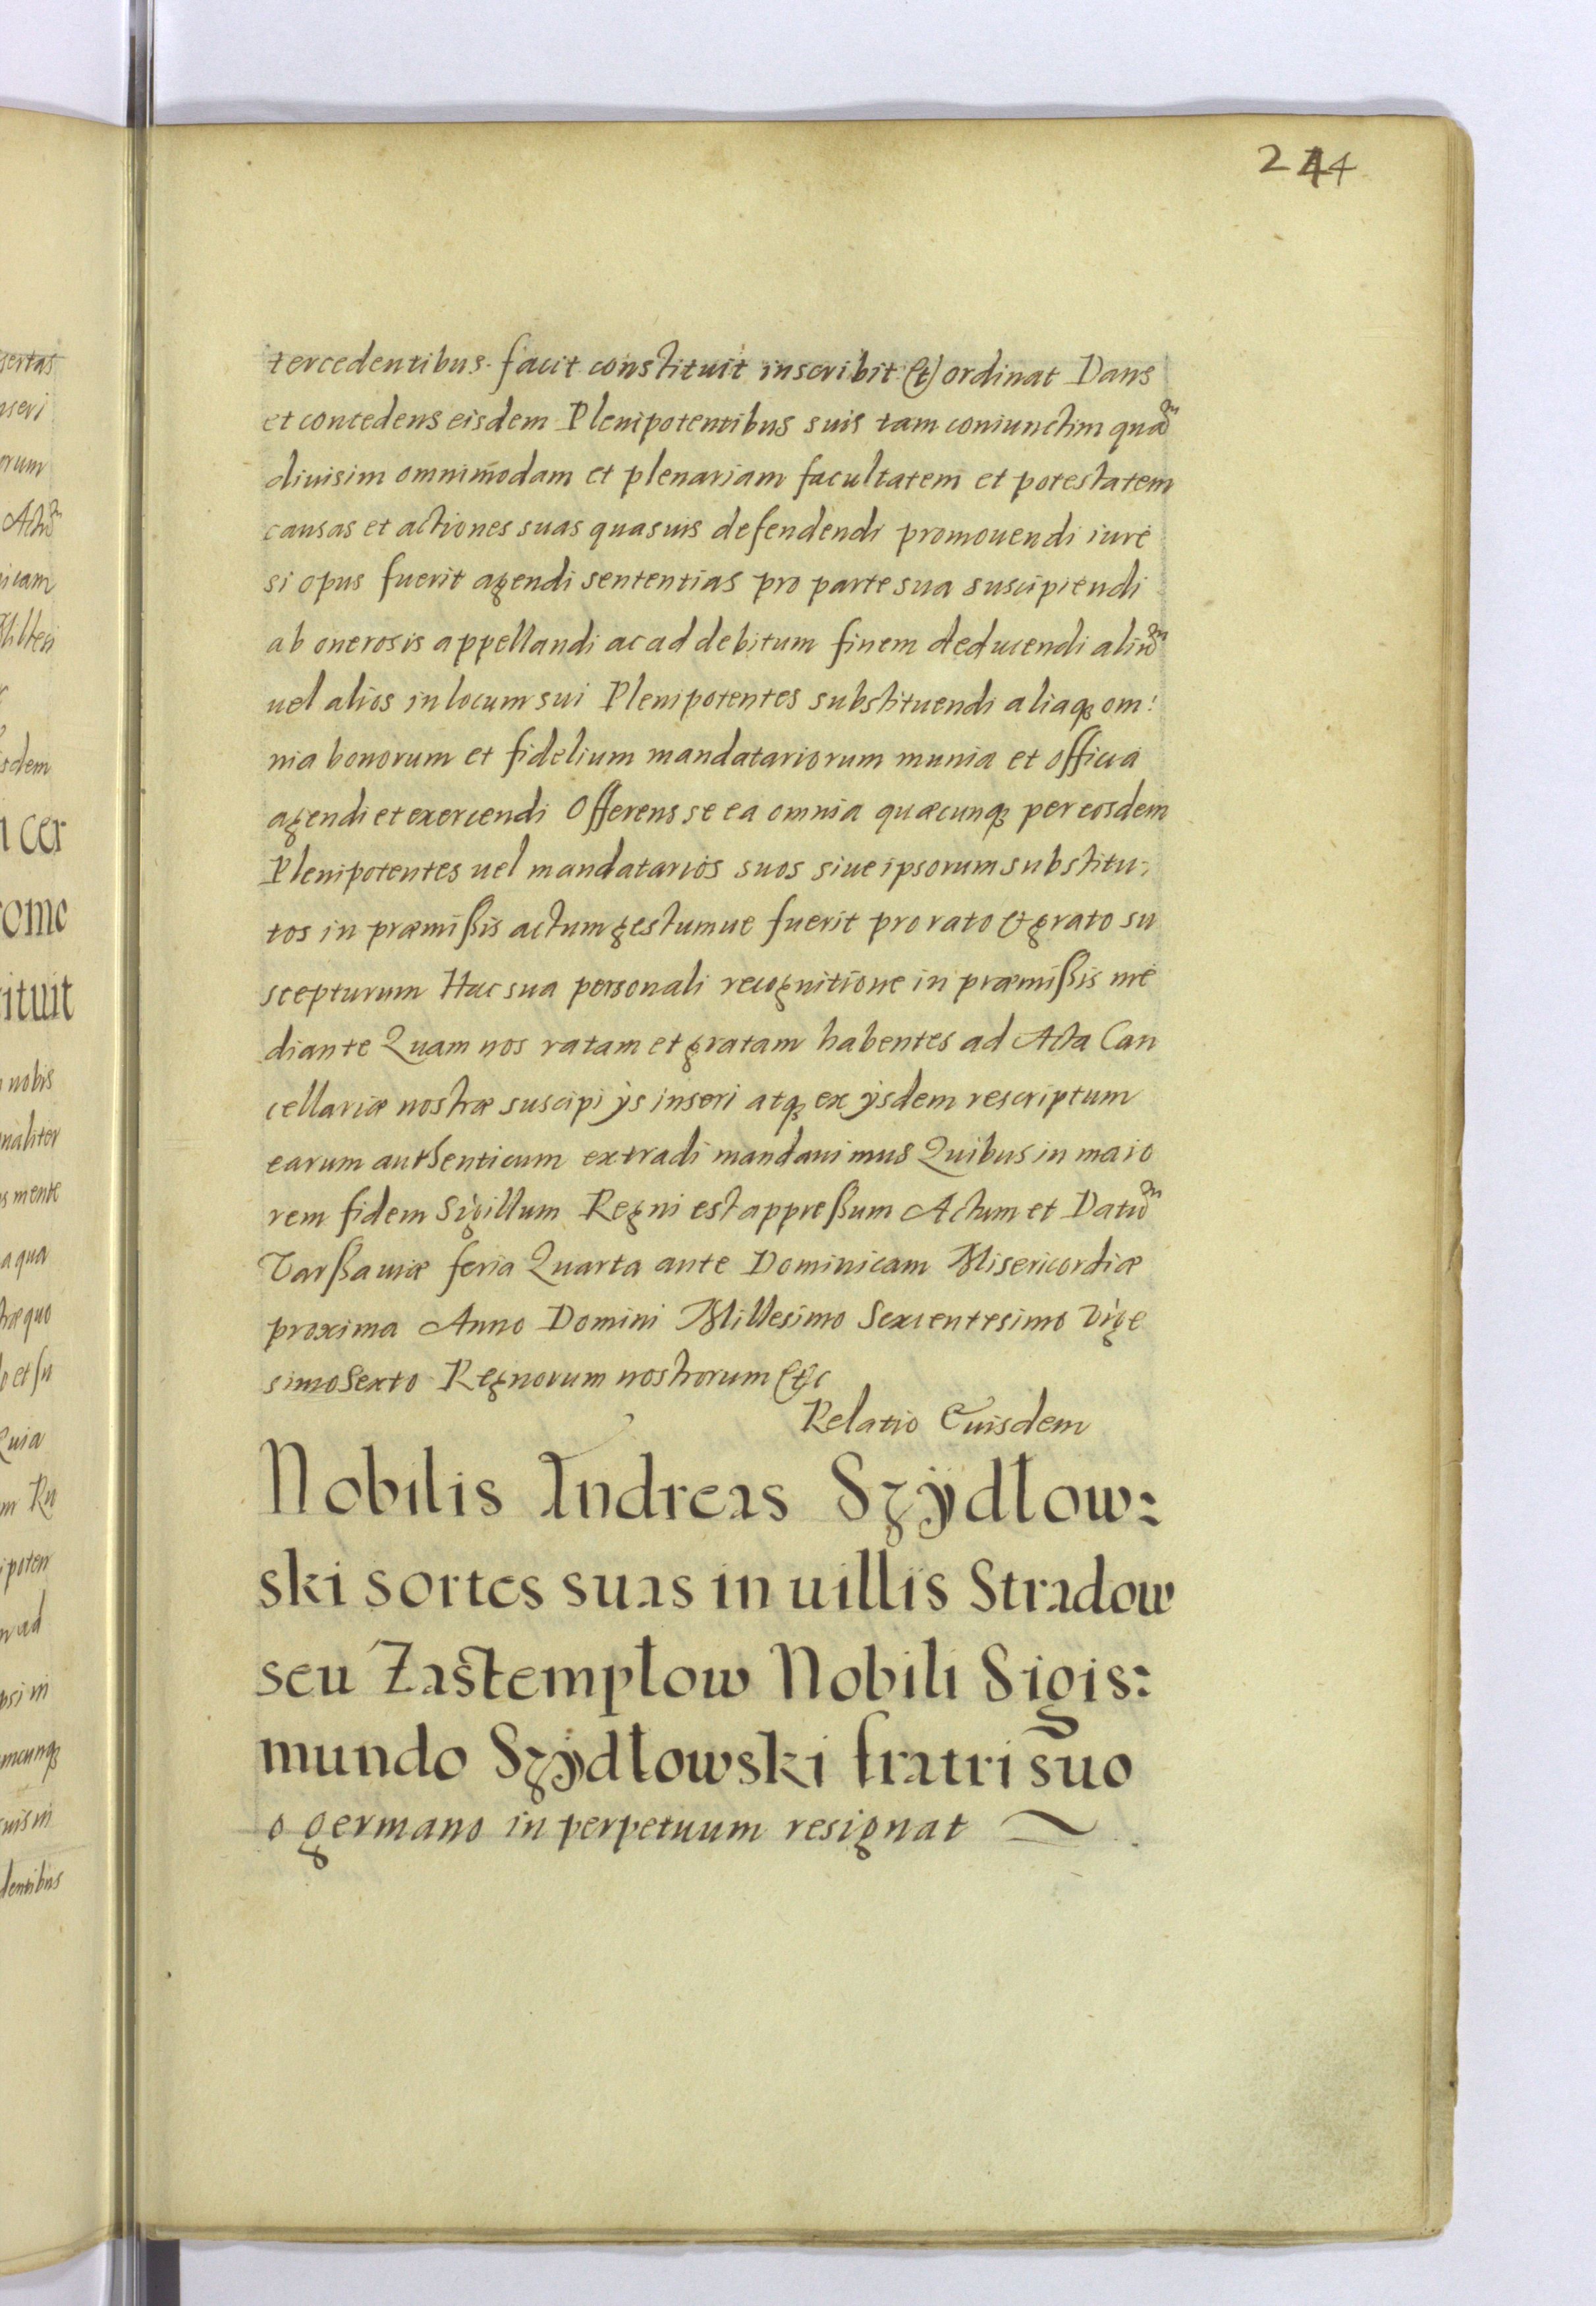 244
tercedentibus facit constituit inscribit et ordinat Dans
et concedens eisdem Plenipotentibus suis tam coniunctim quam
diuisim omnimodam et plenariam facultatem et potestatem
causas et actiones suas quasuis defendendi promouendi iure
si opus fuerit agendi sententias pro parte sua suscipiendi
ab onerosis appellandi ac ad debitum finem deducendi alium
uel alios in locum sui Plenipotentes substituendi aliaq om:
nia bonorum et fidelium mandatariorum munia et officia
agendi et exercendi Offerens se ea omnia quæcunq per eosdem
Plenipotentes uel mandatarios suos siue ipsorum substitu-
tos in præmißis actum gestumue fuerit pro rato et grato su
scepturum Hac sua personali recognitione in præmißis me
diante Quam nos ratam et gratam habentes ad Acta Can
cellariæ nostræ suscipi ÿs inseri atq ex ÿsdem rescriptum
earum authenticum extradi mandauimus Quibus in maio
rem fidem Sigillum Regni est appreßum Actum et Datum
Varßauiæ feria Quarta ante Dominicam Misericordiæ
proxima Anno Domini Millesimo Sexcentesimo Vige
simo Sexto Regnorum nostrorum etc
Relatio Euisdem
Nobilis Andreas Szÿdłow:
ski sortes suas in uillis Stradow
seu Zastempłow Nobili Sigis:
mundo Szÿdłowski fratri suo
o germano in perpetuum resignat